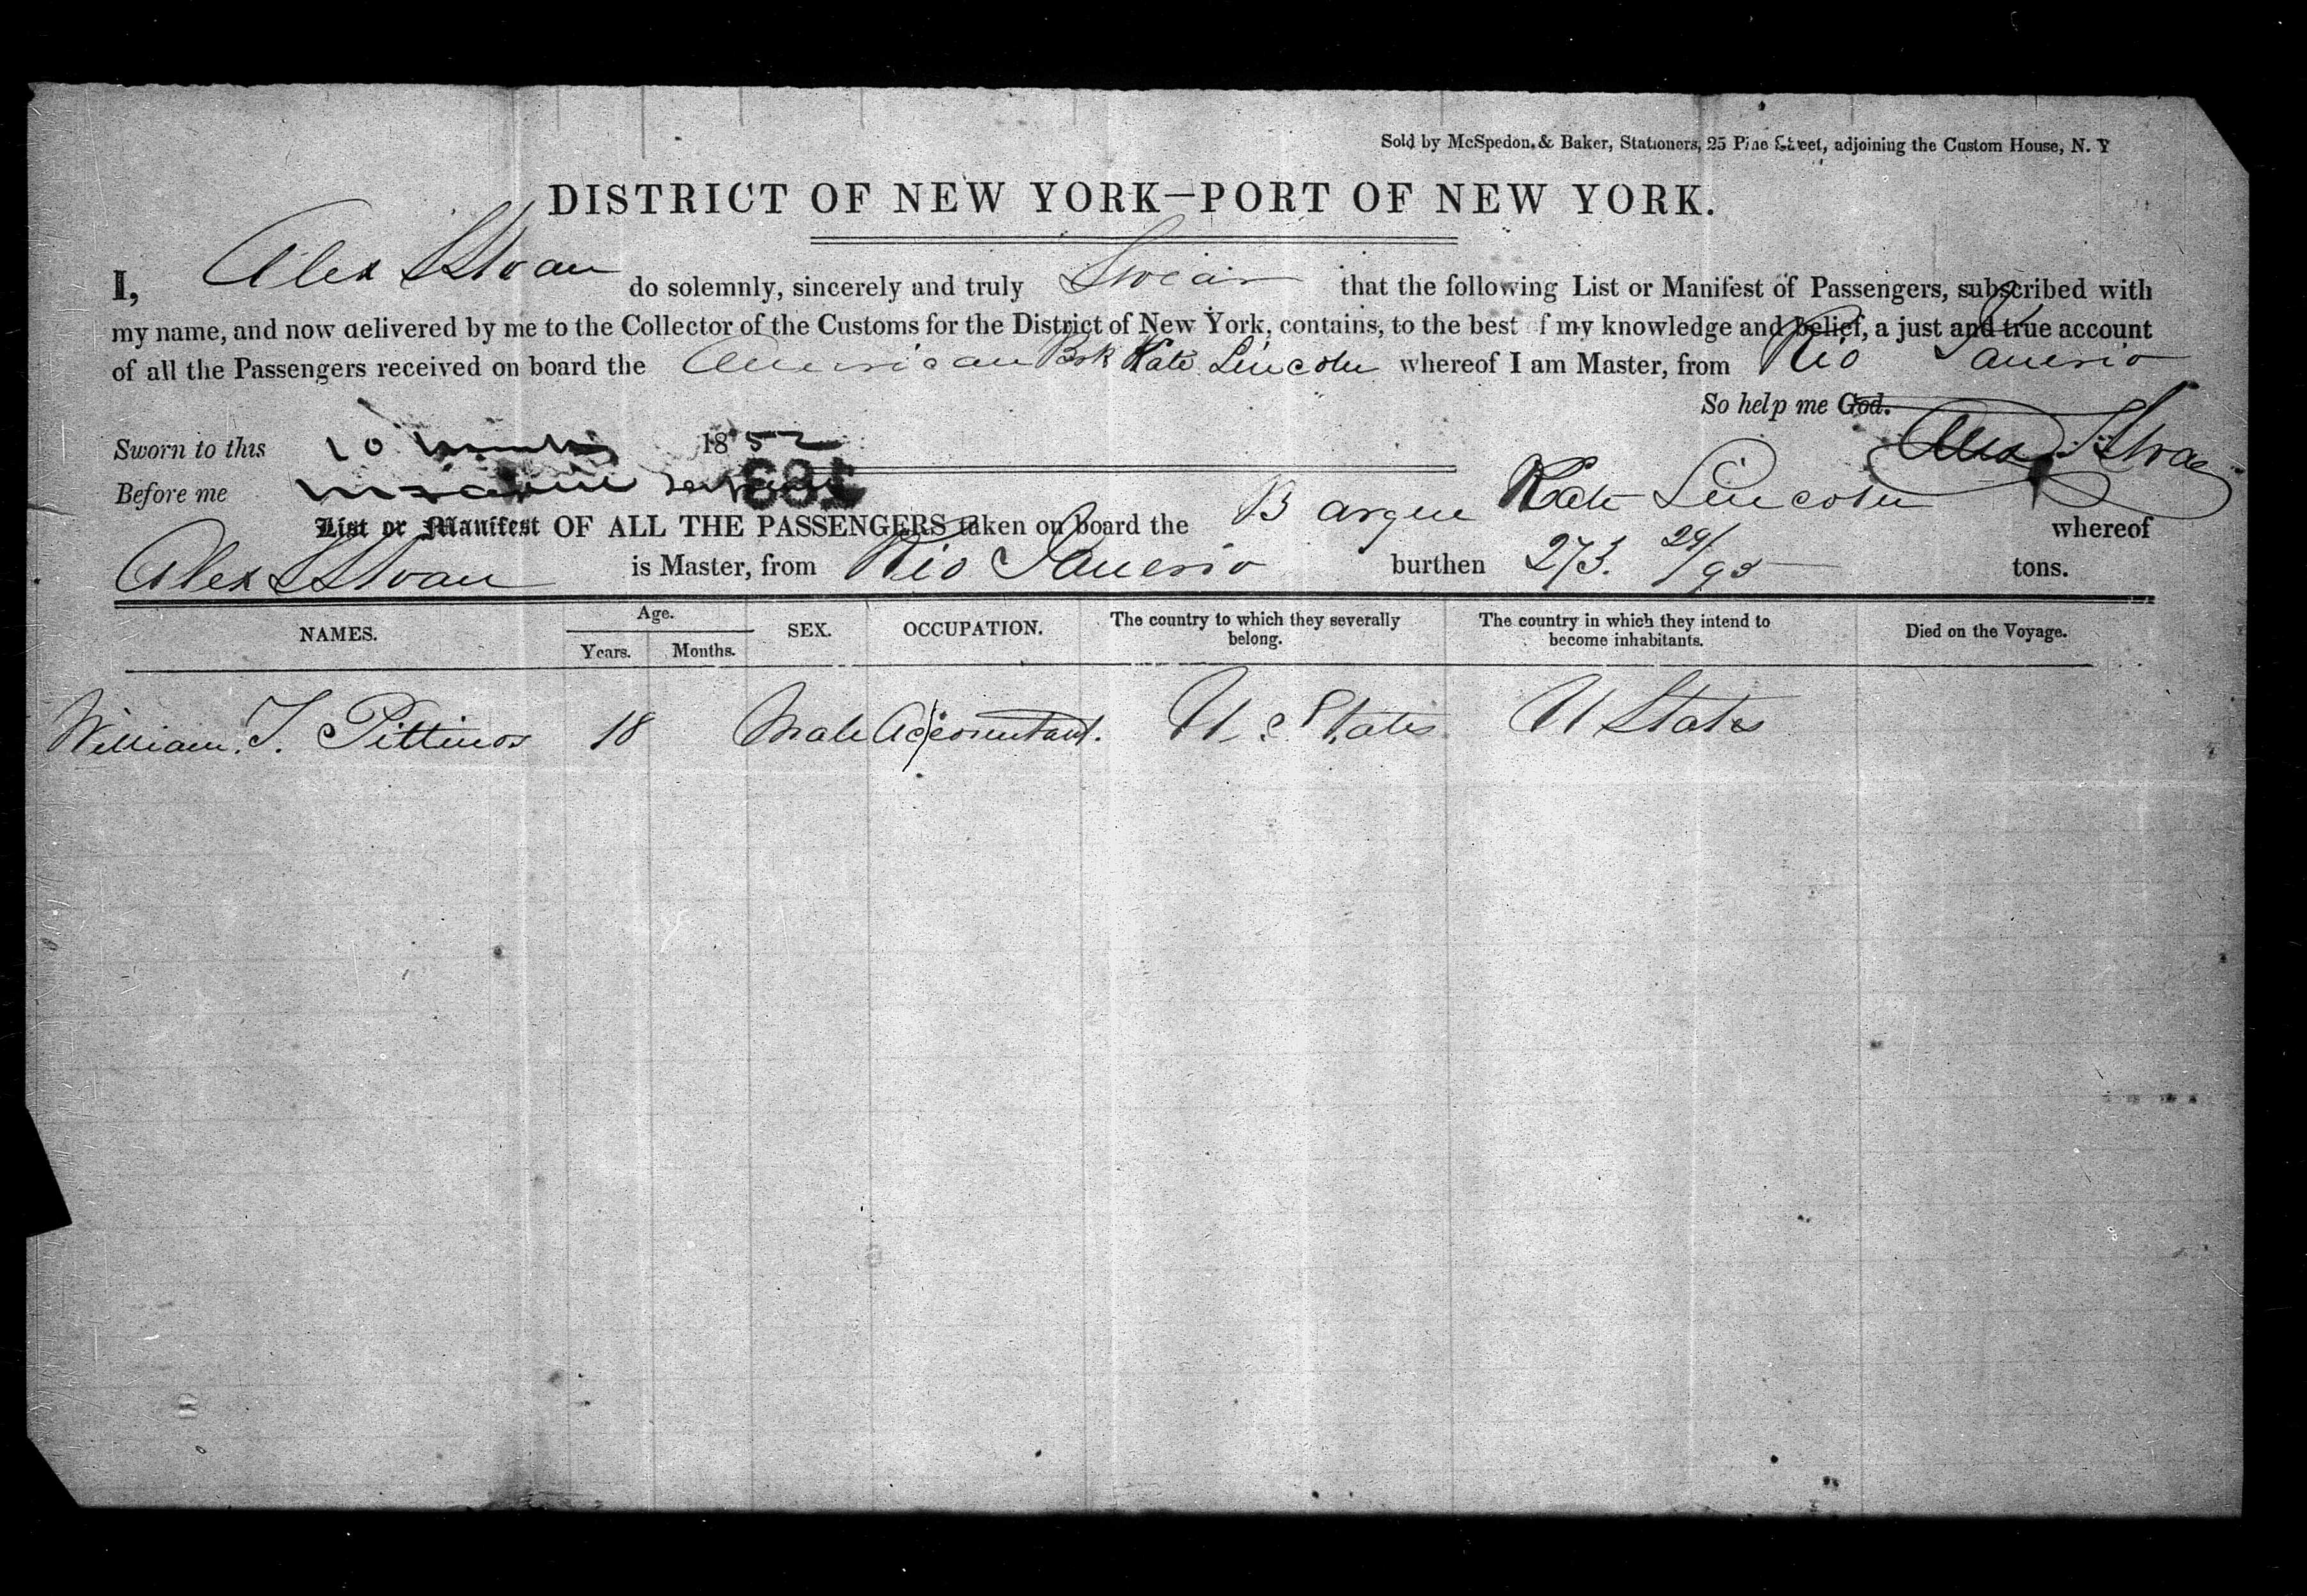 Sold by McSpedon & Baker, Stationers, 25 Pine Street, adjoining the Custom House, N. Y
DISTRICT OF NEW YORK—PORT OF NEW YORK.
I, Alex do solemnly, sincerely and truly Swear that the following List or Manifest of Passengers, subscribed with
my name, and now delivered by me to the Collector of the Customs for the District of New York, contains, to the best of my knowledge and belief, a just and true account
of all the Passengers received on board the American Bark Kate Lincoln whereof I am Master, from Rio Janerio
So help me God.
Sworn to this 10 1852
Before me
List or Manifest OF ALL THE PASSENGERS taken on board the Barque Kate Lincoln whereof
Alex is Master, from Rio Janerio burthen 273. 29/95 tons.
NAMES. Age. Years. Months. SEX. OCCUPATION. The country to which they severally belong. The country in which they intend to become inhabitants. Died on the Voyage.
William T. Pittinos 18 Male Accountant. U. States U States